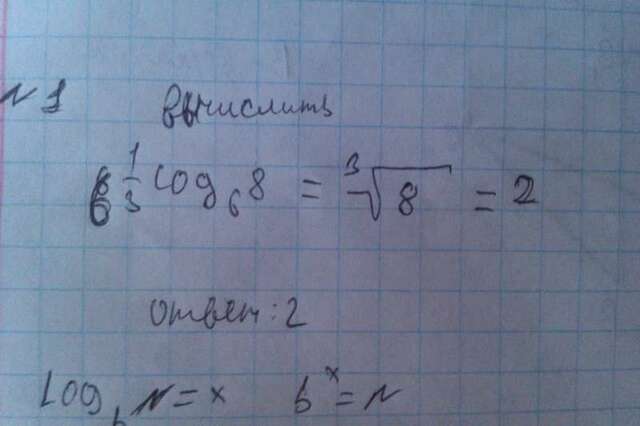 N 1 вычислить
6^{\frac{1}{3} log_6 8} = \sqrt[3]{8} = 2
ответ: 2
Log_b N = x b^x = N